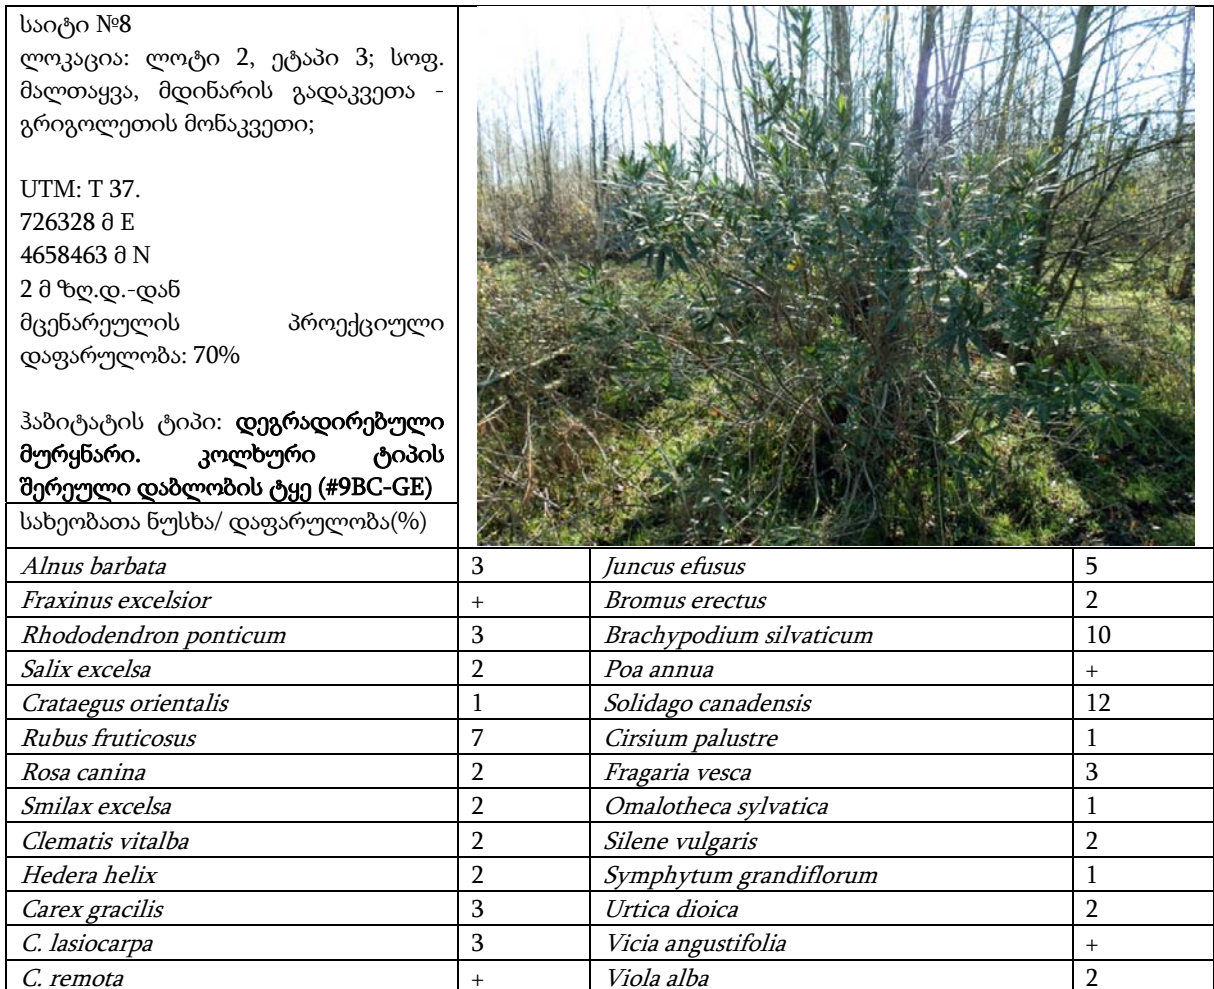 საიტი №8
ლოკაცია: ლოტი 2, ეტაპი 3; სოფ.
მალთაყვა, მდინარის გადაკვეთა -
გრიგოლეთის მონაკვეთი;
UTM: T 37.
726328 მ E
4658463 მ N
2 მ ზღ.დ.-დან
მცენარეულის პროექციული
დაფარულობა: 70%
ჰაბიტატის ტიპი: დეგრადირებული
მურყნარი. კოლხური ტიპის
შერეული დაბლობის ტყე (#9BC-GE)
სახეობათა ნუსხა/ დაფარულობა(%)
Alnus barbata 3 Juncus efusus 5
Fraxinus excelsior + Bromus erectus 2
Rhododendron ponticum 3 Brachypodium silvaticum 10
Salix excelsa 2 Poa annua +
Crataegus orientalis 1 Solidago canadensis 12
Rubus fruticosus 7 Cirsium palustre 1
Rosa canina 2 Fragaria vesca 3
Smilax excelsa 2 Omalotheca sylvatica 1
Clematis vitalba 2 Silene vulgaris 2
Hedera helix 2 Symphytum grandiflorum 1
Carex gracilis 3 Urtica dioica 2
C. lasiocarpa 3 Vicia angustifolia +
C. remota + Viola alba 2